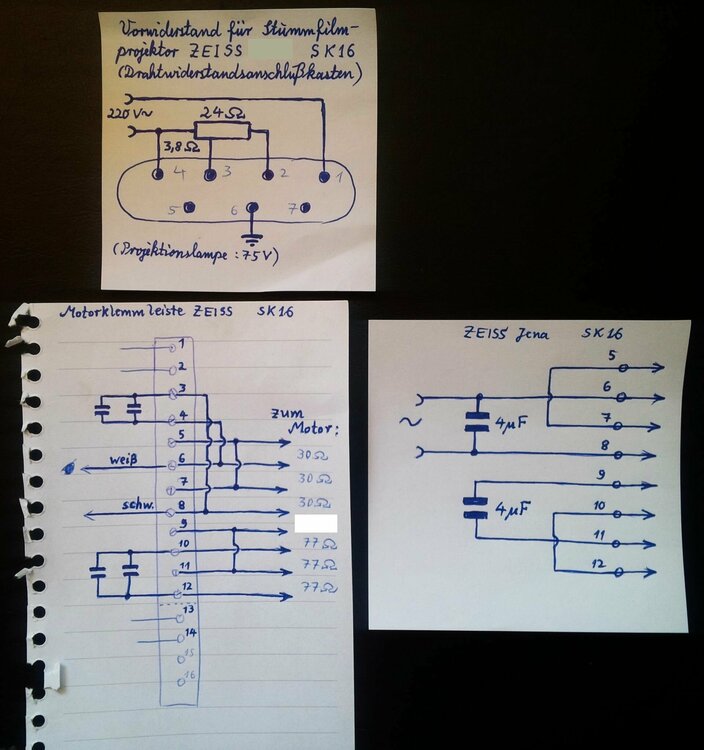 Vorwiderstand für Stummfilm-
projektor ZEISS SK16
(Drahtwiderstandsanschlußkasten)
220 V~
24Ω
3,8Ω
4 3 2 1
5 6 7
(Projektionslampe : 75V)
Motorklemmleiste ZEISS SK16
1
2
3
4
zum
Motor:
5
weiß
6
30Ω
7
30Ω
schw.
8
30Ω
9
10
77Ω
11
77Ω
12
77Ω
13
14
15
16
ZEISS Jena SK16
5
6
~
4µF
7
8
9
4µF
10
11
12